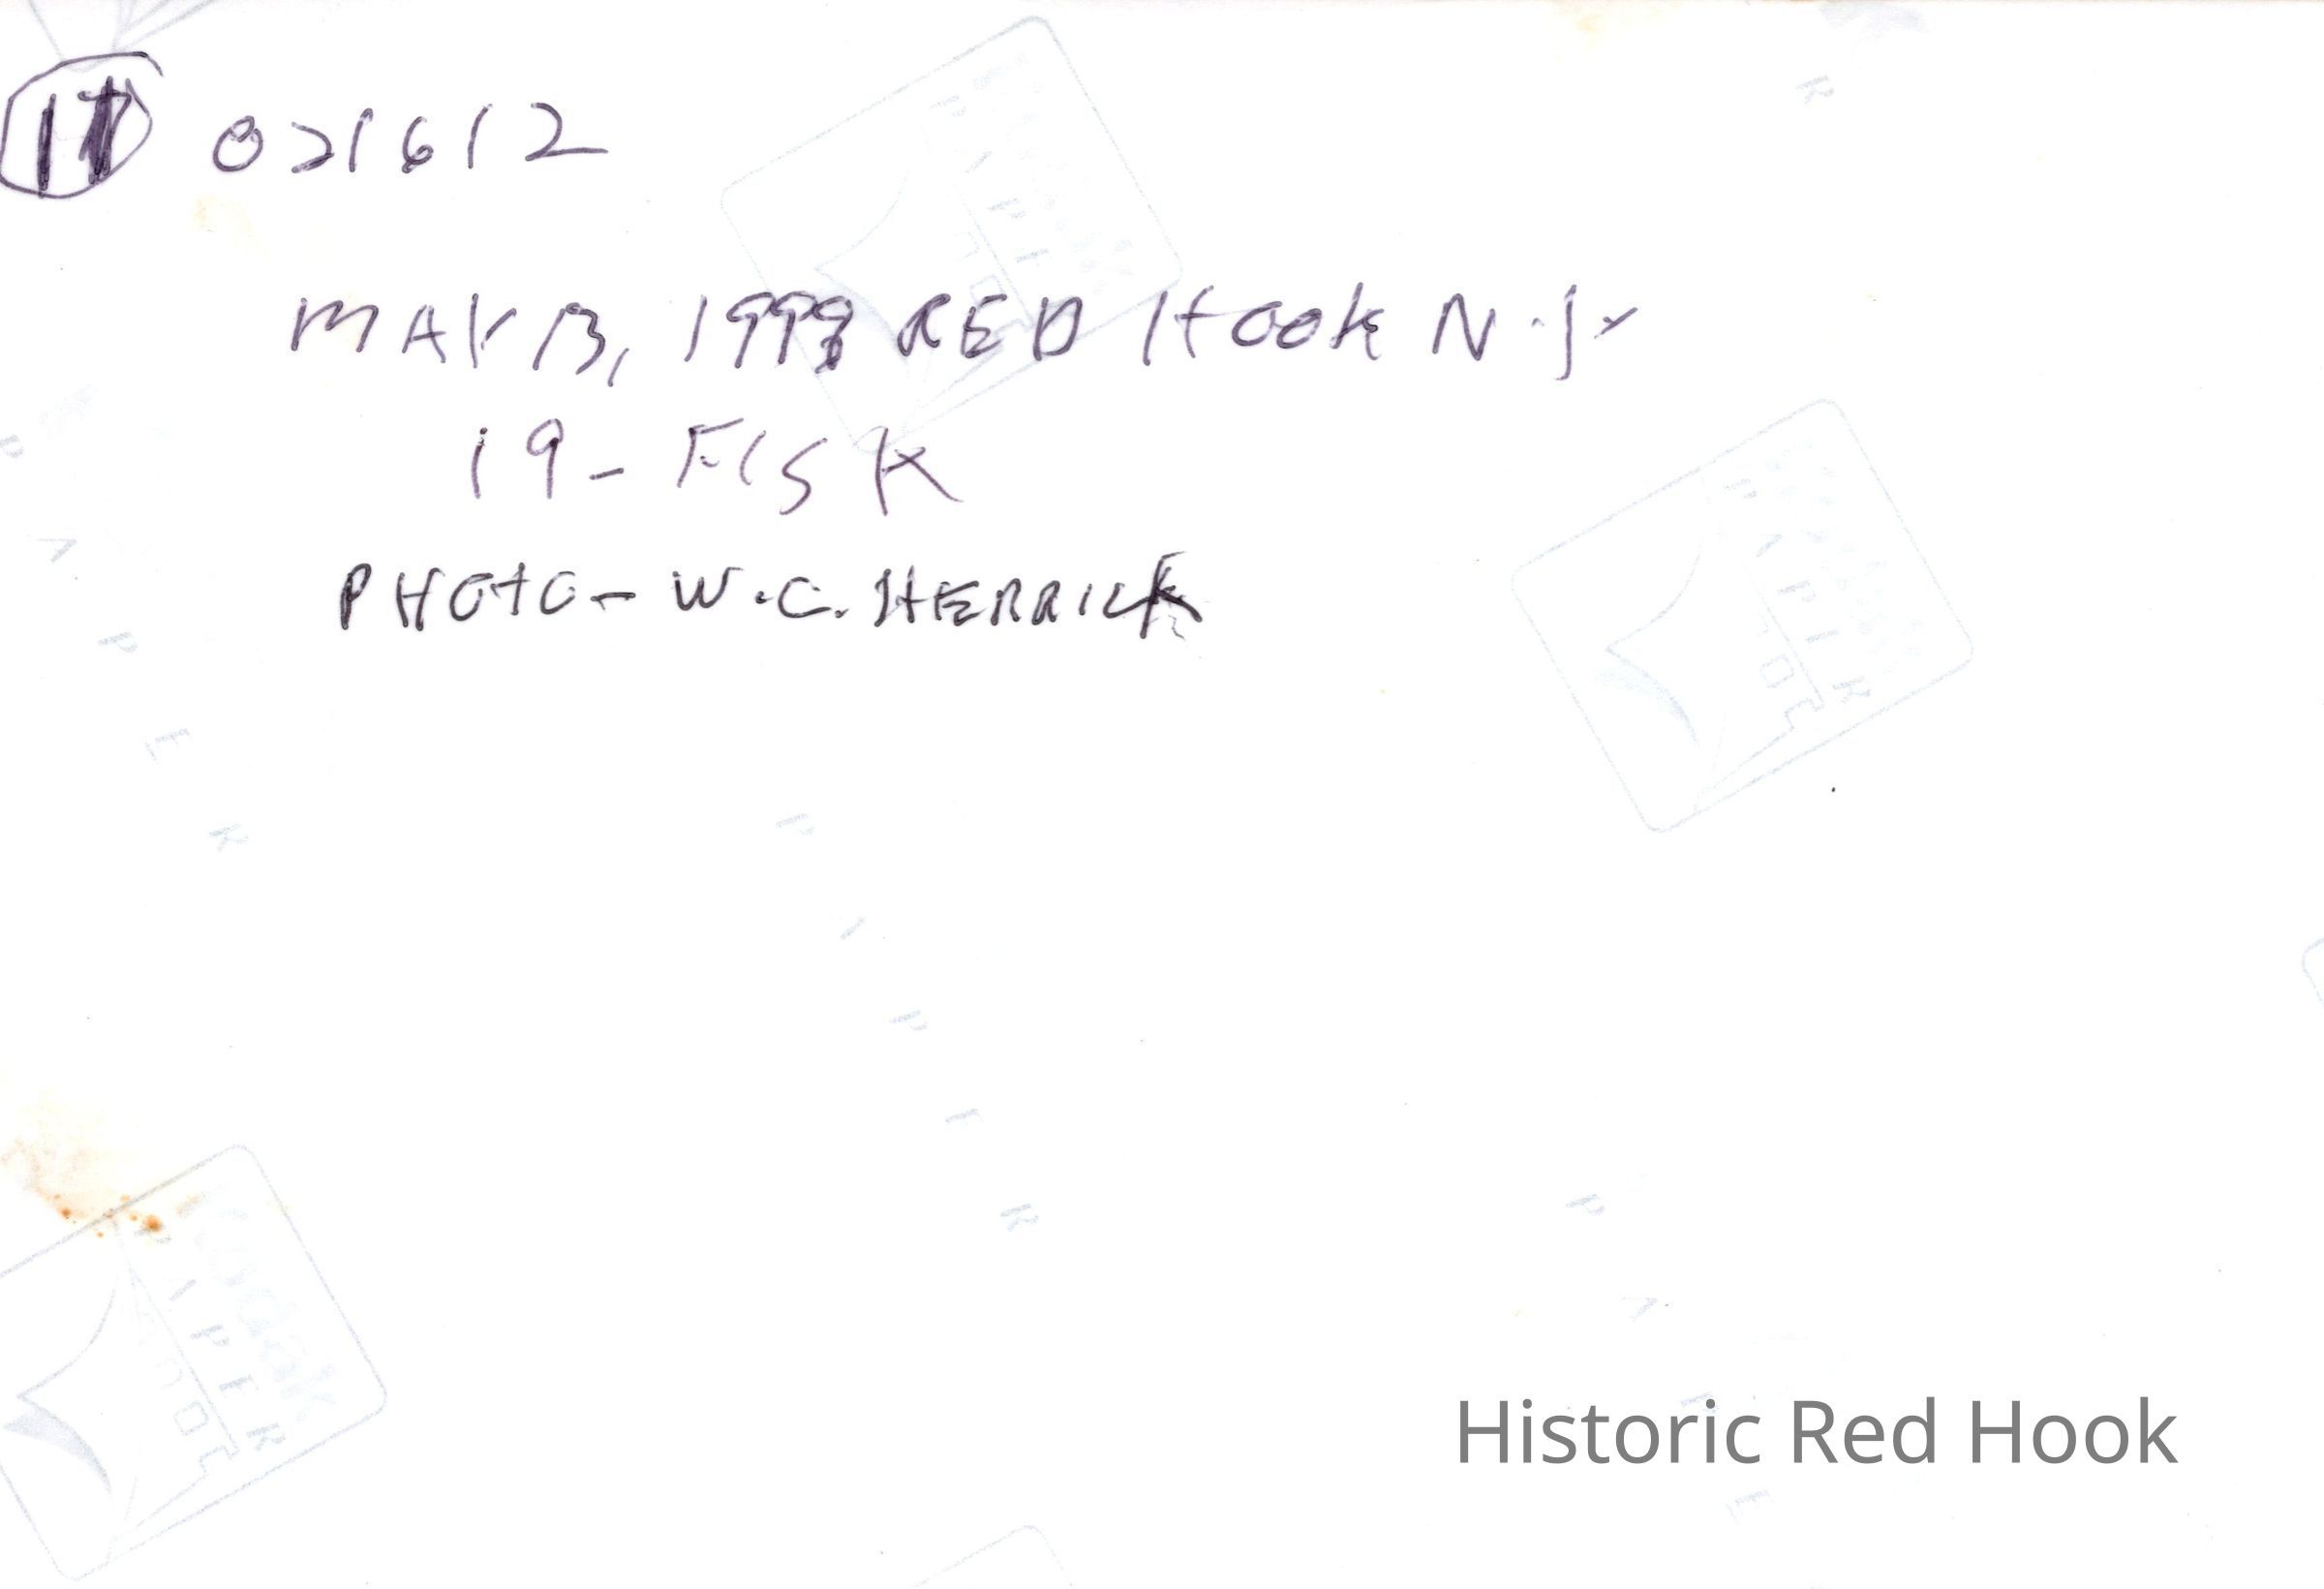 17 021612
MAY 13, 1999 RED HOOK N.Y
19- FISK
PHOTO- W.C. HERRICK
Kodak
PAPER
Historic Red Hook